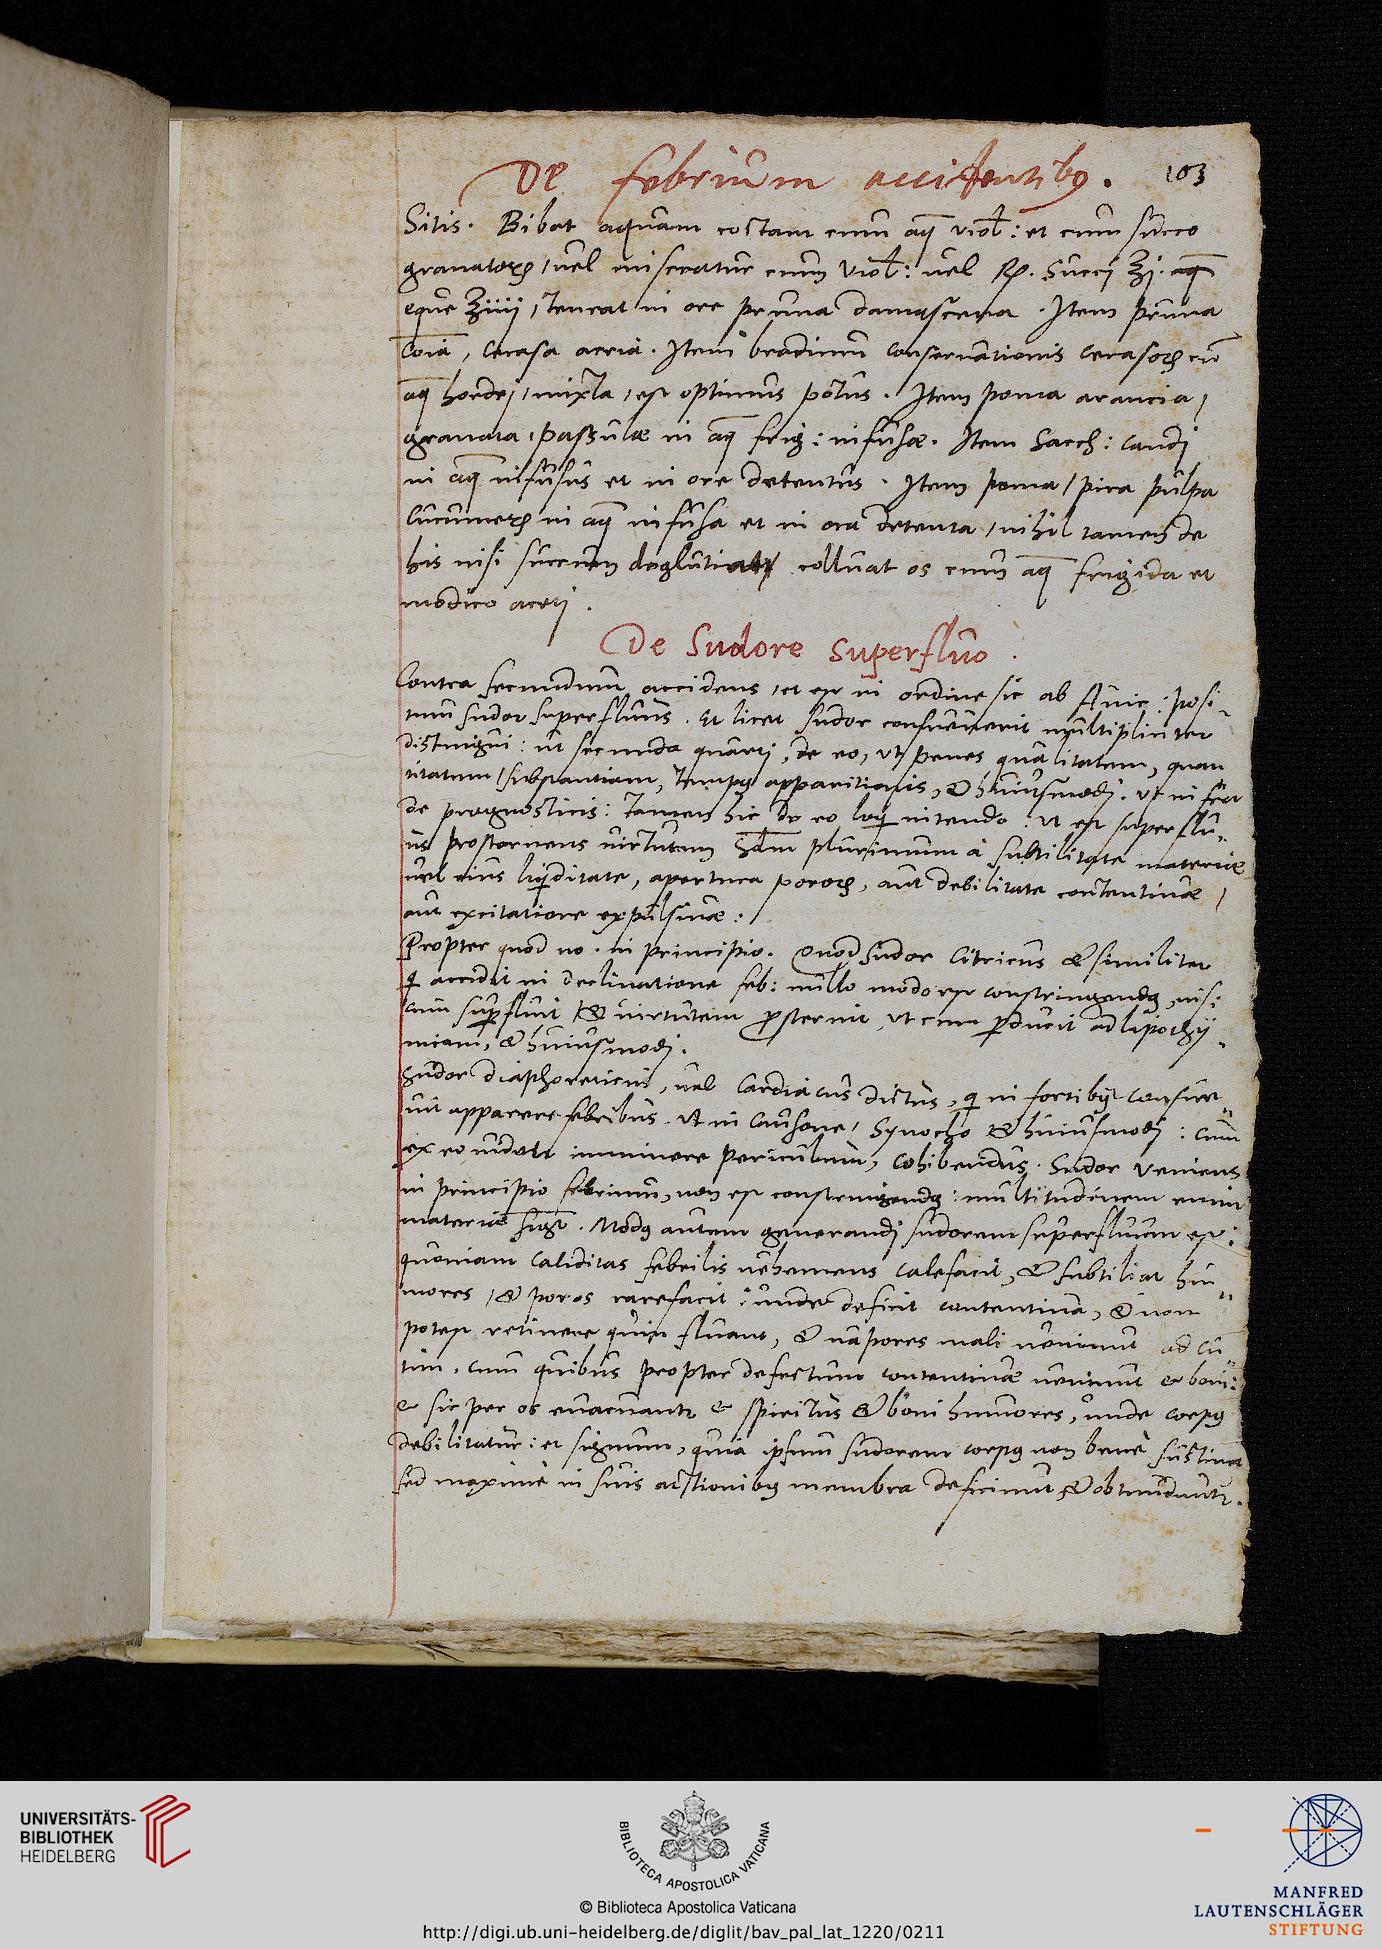 De febrium accidentibꝰ.
103
Sitis. Bibat aquam coctam cum aq̄ viol: et cum succo
granatoꝝ, vel misceatur cum viol: vel Rp. Succj ʒj. aq̄
eque ʒiiij, teneat in ore pruna damascena. Item pruna
coia, cerasa acria. Item brodium conservationis cerasoꝝ cū
aq̄ hordej, mixta, est optimus potus. Item poma arancia,
granata, passulæ in aq̄ frig: infusæ. Item sacch: candj
in aq̄ infusus et in ore detentus. Item poma, pira pulpa
cucumeꝝ in aq̄ infusa et in ore detenta, nihil tamen de
his nisi succum deglutiat colluat os cum aq̄ frigida et
modico acetj.
De Sudore superfluo.
Contra secundum accidens, et est in ordine sic ab Auic: posi-
tum sudor superfluus. Et licet sudor consueverit multipliciter
distingui: ut secunda quarti, de eo, ut penes qualitatem, quan
titatem, substantiam, tempꝰ apparitionis, & huiusmodj. ut infra
de prognosticis: tamen hic de eo loq intendo: ut est superflu-
us prosternens virtutem Sdm plurimum a subtilitate materiæ
vel eius liqiditate, apertura poroꝝ, aut debilitate contentivæ,
aut excitatione expulsivæ:
Propter quod no. in principio. Quod sudor Citricus & similiter
q accidit in declinatione feb: nullo modo est constringendꝰ, nisi
cum supfluit, & virtutem psternit, ut cum pducit ad lipothÿ-
miam, & huiusmodj.
Sudor diaphoreticus, vel Cardiacus dictus, q in fortibꝰ consue-
vit apparere febribus. ut in causone, Synocho & huiusmodj: cum
ex eo videte imminere periculum, cohibendus. Sudor veniens
in principio febrium, non est constringendꝰ: multitudinem enim
materiæ sigt. Modꝰ autem generandj sudorem superfluum est:
quoniam caliditas febrilis vehemens calefacit, & subtiliat hu-
mores, & poros rarefacit: unde deficit contentiva, & non
potest retinere quin fluant, & vapores mali veniunt ad cu
tim. cum quibus propter defectum contentivæ veniunt & boni:
& sic per os evacuantr & spiritus & boni humores, unde corpꝰ
debilitatur: et signum, quia ipsum sudorem corpꝰ non bene sustinet
sed maxime in suis actionibꝰ membra deficiunt & obtunduntr.
UNIVERSITÄTS-
BIBLIOTHEK
HEIDELBERG
BIBLIOTECA APOSTOLICA VATICANA
© Biblioteca Apostolica Vaticana
http://digi.ub.uni-heidelberg.de/diglit/bav_pal_lat_1220/0211
MANFRED
LAUTENSCHLÄGER
STIFTUNG